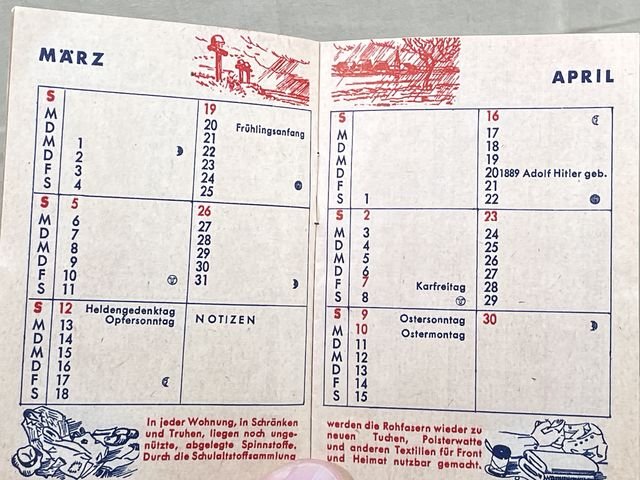 MÄRZ
S
M
D
M 1
D 2
F 3
S 4
S 5
M 6
D 7
M 8
D 9
F 10
S 11
S 12 Heldengedenktag
M 13 Opfersonntag
D 14
M 15
D 16
F 17
S 18
19
20 Frühlingsanfang
21
22
23
24
25
26
27
28
29
30
31
NOTIZEN
In jeder Wohnung, in Schränken
und Truhen, liegen noch unge-
nützte, abgelegte Spinnstoffe.
Durch die Schulaltstoffsammlung
APRIL
S
M
D
M
D
F
S 1
S 2
M 3
D 4
M 5
D 6
F 7 Karfreitag
S 8
S 9 Ostersonntag
M 10 Ostermontag
D 11
M 12
D 13
F 14
S 15
16
17
18
19
20 1889 Adolf Hitler geb.
21
22
23
24
25
26
27
28
29
30
werden die Rohfasern wieder zu
neuen Tuchen, Polsterwatte
und anderen Textilien für Front
und Heimat nutzbar gemacht.